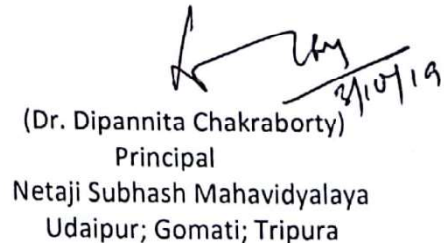 3/10/19
(Dr. Dipannita Chakraborty)
Principal
Netaji Subhash Mahavidyalaya
Udaipur; Gomati; Tripura